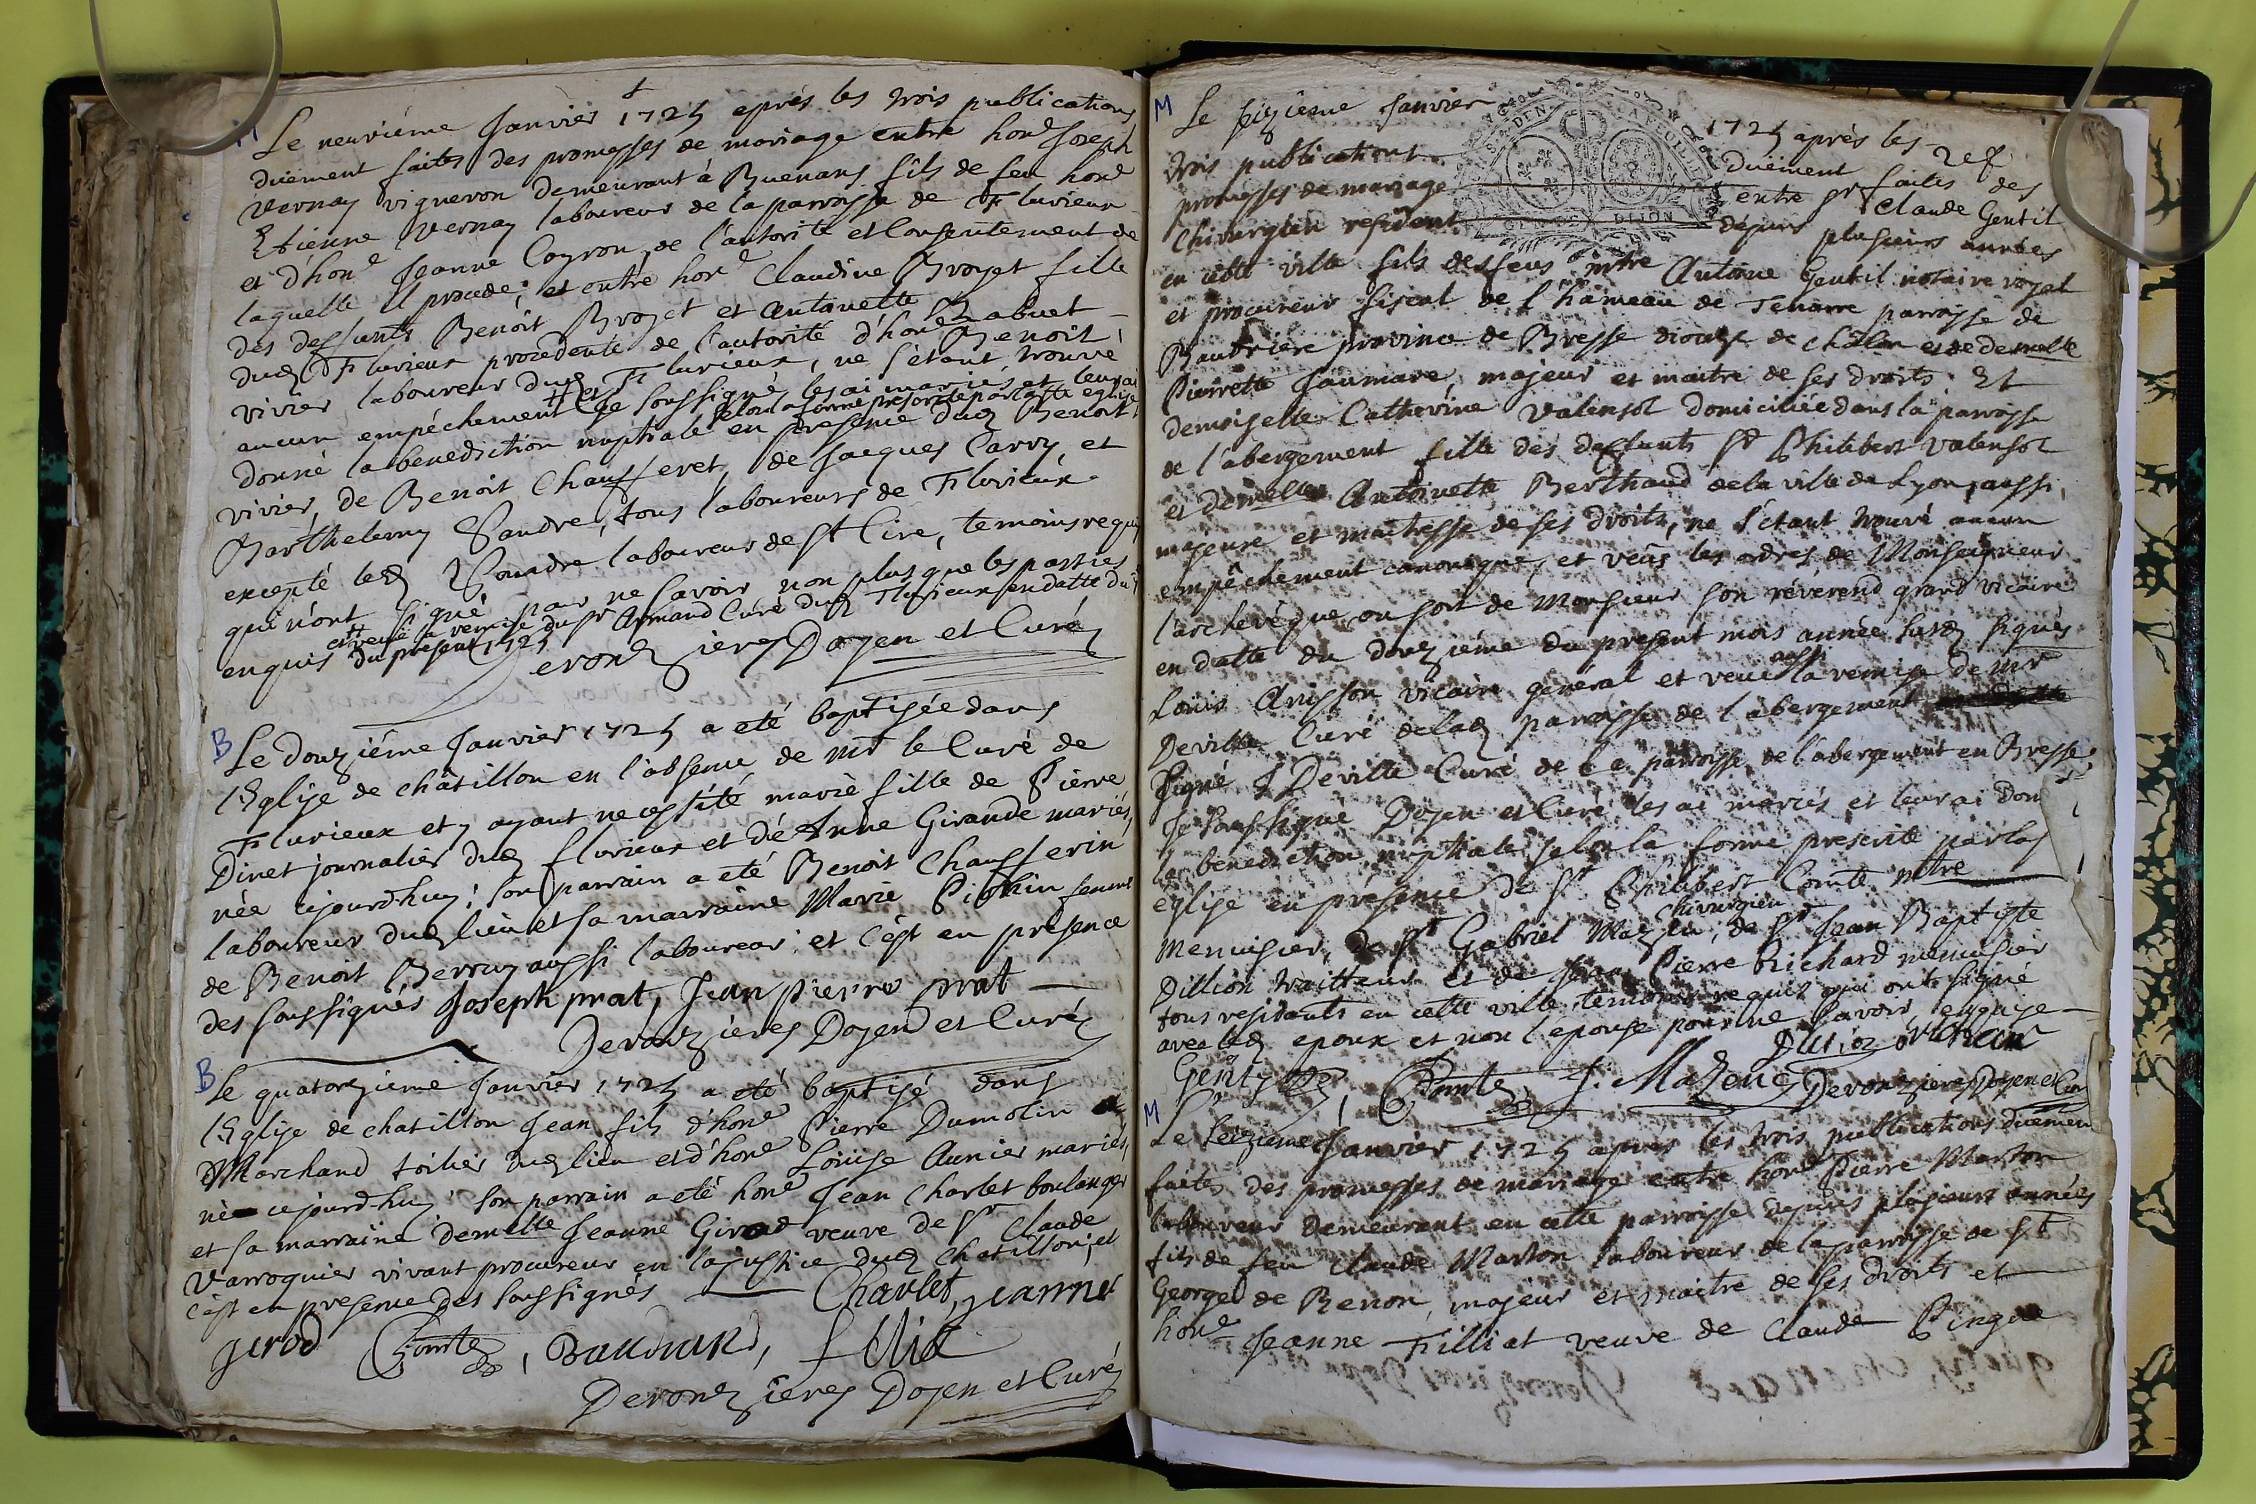 M
Le neuviéme Janvier 1725 aprés les trois publications
duëment faites des promesses de mariage entre hone Joseph
Vernay vigneron demeurant à Buenans fils de feu hone
Etienne Vernay laboureur de la parroisse de Flurieux
et d'hone Jeanne Coyron, de l'autorité et Consentement de
laquelle Il procede; et entre hone Claudine Broyet fille
des deffunts Benoit Broyet et antoinette Rabuet
dud Flurieux procédente de l'autorité d'hone Benoit
vivier laboureur dud Flurieux, ne s'étant trouvé
aucun empéchement et Je soussigné les ai mariés et leur ai
donné la benediction nuptiale selon la forme prescrite par la ste église en presence dud Benoit
vivier, de Benoit Chaufferet, de Jacques Carry, et
Barthelemy Vandre, tous laboureurs de Flurieux
excepté led laboureur de St Cire, temoins requis
qui n'ont signé pour ne savoir non plus que les parties
enquis et veüe la remise du Sr Armand Curé dud Flurieux en datte du
du présent 1725
Deronzieres Doyen et Curé
B
Le douziéme Janvier 1725 a eté baptisée dans
l'Eglise de châtillon en l'absence de mr le Curé de
Flurieux et y ayant necessité marie fille de Pierre
Dinet journalier dud flurieux et de Anne Girande mariés,
née cejourd-huy; son parrain a eté Benoit Chaufferin
laboureur dud lieu et sa marraine Marie Pichin femme
de Benoit Berruy aussi laboureur; et c'est en présence
des soussignés Joseph prat, Jean pierre prat
Deronzieres Doyen et Curé
B
Le quatorzieme Janvier 1725 a eté baptisé dans
l'Eglise de chatillon Jean fils d'hone Pierre Dumolin
Marchand toilier dud lieu et d'hone Loüise Aunier mariés,
né cejourd-huy son parrain a eté hone Jean Charlet boulanger
et sa marraine demelle Jeanne Girod veuve de Sr Claude
Varroquier vivant procureur en la justice dud chatillon; et
c'est en presence des soussignés Charlet, jeanne
girod Comte, Baudrand, felix
Deronzieres Doyen et Curé
M
Le seizieme Janvier 1725 aprés les
trois publications duëment faites des
promesses de mariage entre Sr Claude Gentil
Chirurgien résident depuis plusieurs années
en cette ville fils des feus mtre Antoine Gentil notaire royal
et procureur fiscal de l'hameau de Tenarre parroisse de
Baudriere province de Bresse diocese de châlon et de demelle
Pierrette Jaumare, majeur et maitre de ses droits. Et
demoiselle Catherine Valensot domiciliée dans la parroisse
de l'abergement fille des deffunts Sr Philibert Valensot
et demelle Antoinette Berthaud de la ville de Lyon, aussi,
majeure et maitresse de ses droits, ne s'étant trouvé aucun
empéchement canonique, et veüs les ordres de Monseigneur
l'archevéque ou soit de Monsieur son révérend grand vicaire
en datte du douziéme du present mois année susd signés
Loüis Anisson vicaire general et veüe aussi la remise de mr
Deville Curé de lad parroisse de l'abergement
Signé J Deville Curé de la parroisse de l'abergement en Bresse;
Je soussigné Doyen et Curé les ai mariés et leur ai donné
la benediction nuptiale selon la forme prescrite par la
église en présence de Sr Philibert Comte mtre
menuisier, de Sr Gabriel Mazen, chirurgien de Sr Jean Baptiste
Dillion traitteur et de Jean Pierre Richard menuisier
tous residents en cette ville, témoins requis qui ont signé
avec led epoux et non l'epouse pour ne savoir, enquise
Gentil, Comte, J. Mazene, Deronzieres Doyen et Curé
M
Le Seizieme Janvier 1725 aprés les trois publications duëment
faites des promesses de mariage entre hone Pierre Marton
laboureur demeurant en cette parroisse depuis plusieurs années
fils de feu claude Marton laboureur de la parroisse de St
George de Renon, majeur et maitre de ses droits et
hone Jeanne Filliat veuve de Claude
GEN. DE DIJON